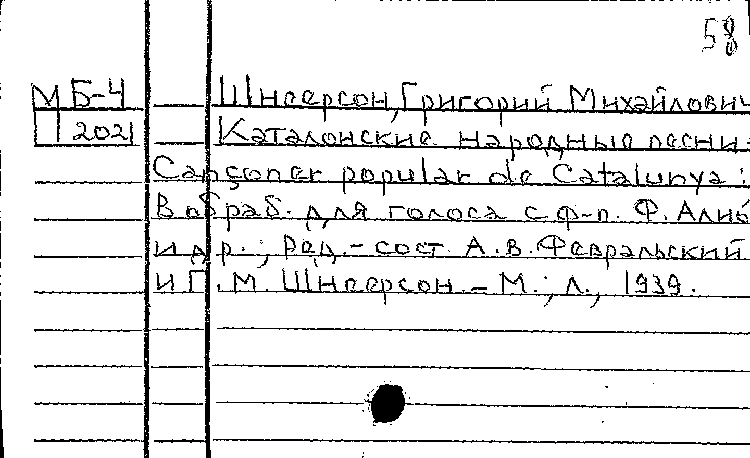 58
МБ-4 Шнеерсон, Григорий Михайлович
П 2021 Каталонские народные песни =
Cançoner popular de Catalunya :
В обраб. для голоса с ф-п. Ф. Алиб
и др.; Ред.-сост. А.В. Февральский
и Г.М. Шнеерсон. - М.; Л., 1939.